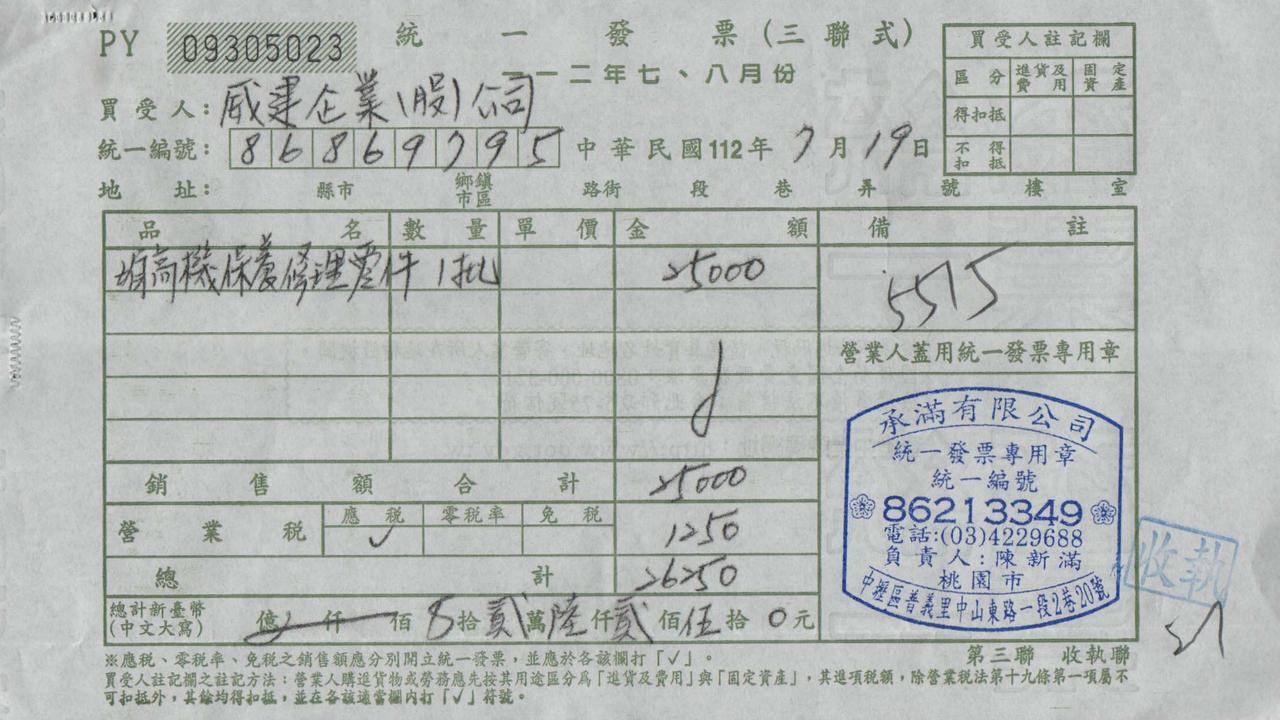 PY 09305023 統一發票(三聯式)
一一二年七、八月份
買受人註記欄
區分 進貨及費用 固定資產
得扣抵
不得扣抵
買受人: 威建企業(股)公司
統一編號: 86869795 中華民國112年7月19日
地址: 縣市 鄉鎮市區 路街 段 巷 弄 號 樓 室
品名 數量 單價 金額 備註
堆高機保養修理零件 1批 25000 5515
營業人蓋用統一發票專用章
銷售額合計 25000
營業稅 應稅 零稅率 免稅
✓ 1250
總計 26250
總計新臺幣(中文大寫) 億 仟 佰 拾貳萬陸仟貳佰伍拾0元
承滿有限公司
統一發票專用章
統一編號
86213349
電話:(03)4229688
負責人:陳新滿
桃園市
中壢區普義里中山東路一段2巷20號
收執
第三聯 收執聯
※應稅、零稅率、免稅之銷售額應分別開立統一發票,並應於各該欄打「✓」。
買受人註記欄之註記方法:營業人購進貨物或勞務應先按其用途區分為「進貨及費用」與「固定資產」,其進項稅額,除營業稅法第十九條第一項屬不
可扣抵外,其餘均得扣抵,並在各該適當欄內打「✓」符號。